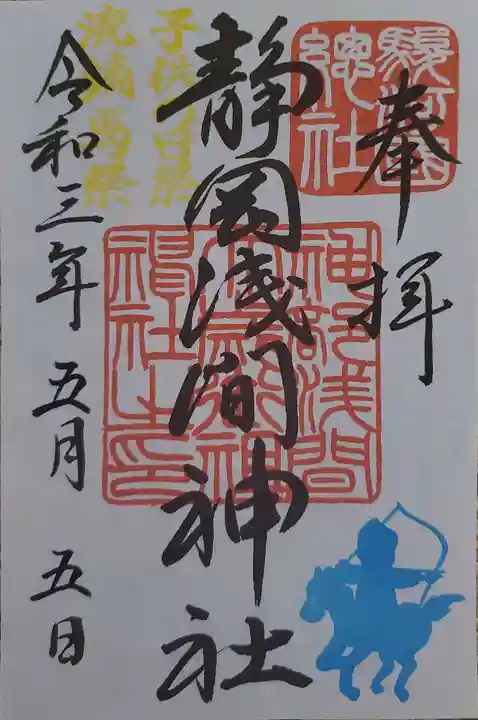 奉拝
駿河國
總社
静岡浅間神社
神部浅間
子供の日祭
流鏑馬祭
令和三年五月五日